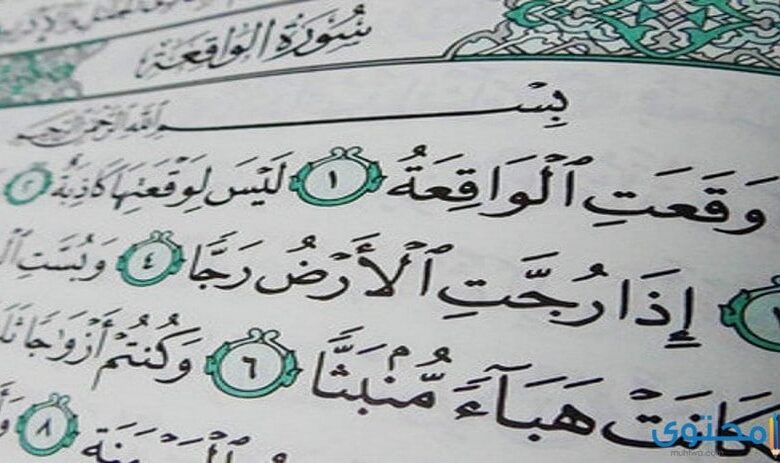 سُورَةُ الوَاقِعَةِ
بِسْمِ اللَّهِ الرَّحْمَٰنِ الرَّحِيمِ
وَقَعَتِ ٱلْوَاقِعَةُ ١ لَيْسَ لِوَقْعَتِهَا كَاذِبَةٌ ٢
إِذَا رُجَّتِ ٱلْأَرْضُ رَجًّا ٤ وَبُسَّتِ
هَبَآءً مُّنۢبَثًّا ٦ وَكُنتُمْ أَزْوَٰجًا
٨
محتوى
muhtwa.com